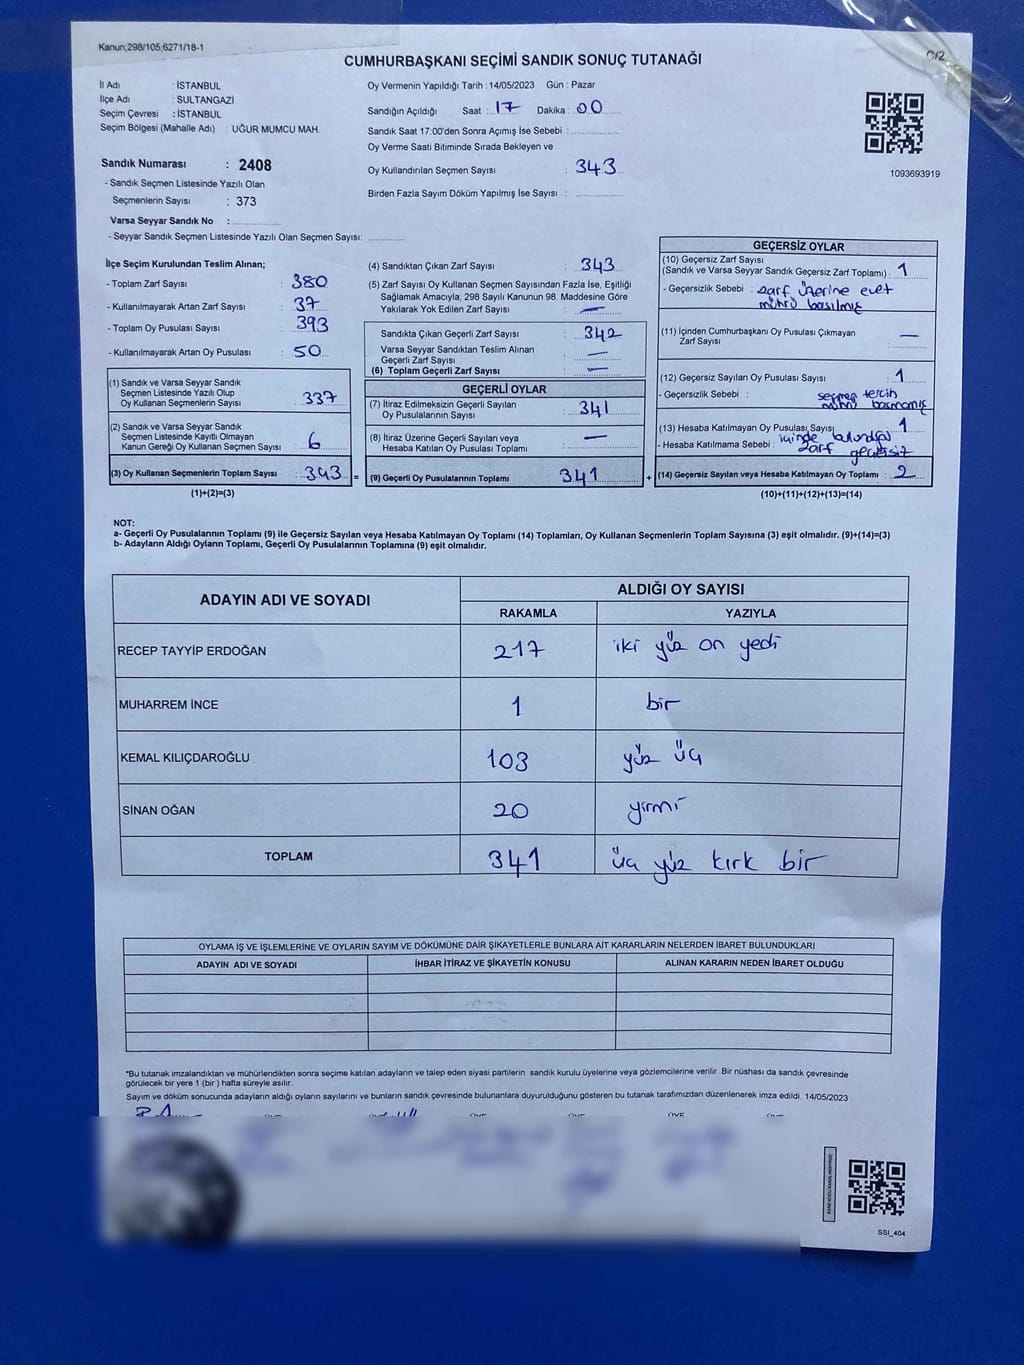 Kanun;298/105;6271/18-1
C/2
CUMHURBAŞKANI SEÇİMİ SANDIK SONUÇ TUTANAĞI
İl Adı : İSTANBUL
İlçe Adı : SULTANGAZİ
Seçim Çevresi : İSTANBUL
Seçim Bölgesi (Mahalle Adı) : UĞUR MUMCU MAH.
Sandık Numarası : 2408
- Sandık Seçmen Listesinde Yazılı Olan
Seçmenlerin Sayısı : 373
Varsa Seyyar Sandık No :
- Seyyar Sandık Seçmen Listesinde Yazılı Olan Seçmen Sayısı:
Oy Vermenin Yapıldığı Tarih : 14/05/2023 Gün : Pazar
Sandığın Açıldığı Saat : 17 Dakika : 00
Sandık Saat 17:00'den Sonra Açımış İse Sebebi :
Oy Verme Saati Bitiminde Sırada Bekleyen ve
Oy Kullandırılan Seçmen Sayısı : 343
Birden Fazla Sayım Döküm Yapılmış İse Sayısı :
1093693919
İlçe Seçim Kurulundan Teslim Alınan;
- Toplam Zarf Sayısı : 380
- Kullanılmayarak Artan Zarf Sayısı : 37
- Toplam Oy Pusulası Sayısı : 393
- Kullanılmayarak Artan Oy Pusulası : 50
(1) Sandık ve Varsa Seyyar Sandık
Seçmen Listesinde Yazılı Olup
Oy Kullanan Seçmenlerin Sayısı : 337
(2) Sandık ve Varsa Seyyar Sandık
Seçmen Listesinde Kayıtlı Olmayan
Kanun Gereği Oy Kullanan Seçmen Sayısı : 6
(3) Oy Kullanan Seçmenlerin Toplam Sayısı : 343 =
(1)+(2)=(3)
(4) Sandıktan Çıkan Zarf Sayısı : 343
(5) Zarf Sayısı Oy Kullanan Seçmen Sayısından Fazla İse, Eşitliği
Sağlamak Amacıyla; 298 Sayılı Kanunun 98. Maddesine Göre
Yakılarak Yok Edilen Zarf Sayısı : —
Sandıkta Çıkan Geçerli Zarf Sayısı : 342
Varsa Seyyar Sandıktan Teslim Alınan
Geçerli Zarf Sayısı : —
(6) Toplam Geçerli Zarf Sayısı : —
GEÇERLİ OYLAR
(7) İtiraz Edilmeksizin Geçerli Sayılan
Oy Pusulalarının Sayısı : 341
(8) İtiraz Üzerine Geçerli Sayılan veya
Hesaba Katılan Oy Pusulası Toplamı : —
(9) Geçerli Oy Pusulalarının Toplamı : 341 +
GEÇERSİZ OYLAR
(10) Geçersiz Zarf Sayısı
(Sandık ve Varsa Seyyar Sandık Geçersiz Zarf Toplamı) : 1
- Geçersizlik Sebebi : zarf üzerine evet
mührü basılmış
(11) İçinden Cumhurbaşkanı Oy Pusulası Çıkmayan
Zarf Sayısı : —
(12) Geçersiz Sayılan Oy Pusulası Sayısı : 1
- Geçersizlik Sebebi : seçmen tercih
mührü basmamış
(13) Hesaba Katılmayan Oy Pusulası Sayısı : 1
- Hesaba Katılmama Sebebi : içinde bulunduğu
zarf geçersiz
(14) Geçersiz Sayılan veya Hesaba Katılmayan Oy Toplamı : 2
(10)+(11)+(12)+(13)=(14)
NOT:
a- Geçerli Oy Pusulalarının Toplamı (9) ile Geçersiz Sayılan veya Hesaba Katılmayan Oy Toplamı (14) Toplamları, Oy Kullanan Seçmenlerin Toplam Sayısına (3) eşit olmalıdır. (9)+(14)=(3)
b- Adayların Aldığı Oyların Toplamı, Geçerli Oy Pusulalarının Toplamına (9) eşit olmalıdır.
ADAYIN ADI VE SOYADI ALDIĞI OY SAYISI
RAKAMLA YAZIYLA
RECEP TAYYİP ERDOĞAN 217 iki yüz on yedi
MUHARREM İNCE 1 bir
KEMAL KILIÇDAROĞLU 103 yüz üç
SİNAN OĞAN 20 yirmi
TOPLAM 341 üç yüz kırk bir
OYLAMA İŞ VE İŞLEMLERİNE VE OYLARIN SAYIM VE DÖKÜMÜNE DAİR ŞİKAYETLERLE BUNLARA AİT KARARLARIN NELERDEN İBARET BULUNDUKLARI
ADAYIN ADI VE SOYADI İHBAR İTİRAZ VE ŞİKAYETİN KONUSU ALINAN KARARIN NEDEN İBARET OLDUĞU
*Bu tutanak imzalandıktan ve mühürlendikten sonra seçime katılan adayların ve talep eden siyasi partilerin sandık kurulu üyelerine veya gözlemcilerine verilir. Bir nüshası da sandık çevresinde
görülecek bir yere 1 (bir) hafta süreyle asılır.
Sayım ve döküm sonucunda adayların aldığı oyların sayılarını ve bunların sandık çevresinde bulunanlara duyurulduğunu gösteren bu tutanak tarafımızdan düzenlenerek imza edildi. 14/05/2023
SSI_404